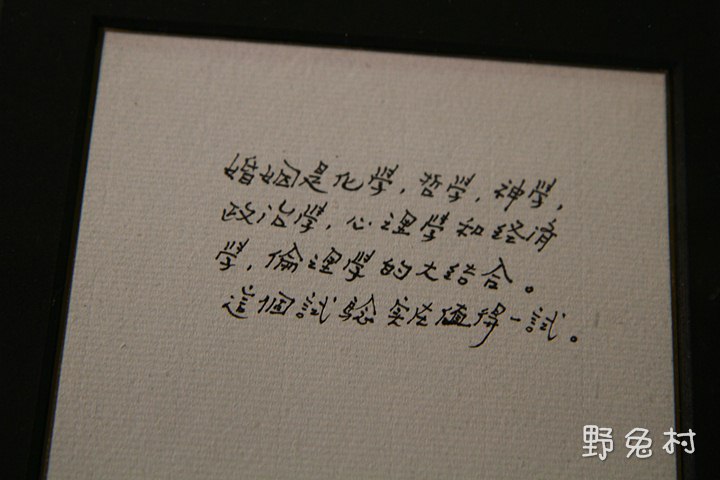 婚姻是化學,哲學,神學,
政治學,心理學和经濟
學,倫理學的大结合。
這個試驗实在值得一試。
野兔村